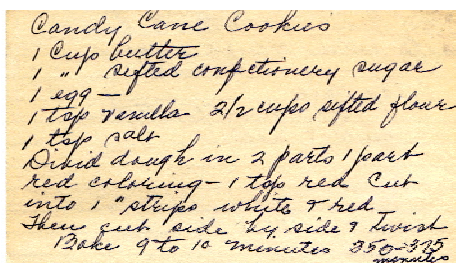 Candy Cane Cookies
1 Cup butter
1 " sifted confectionery sugar
1 egg —
1 tsp vanilla 2 1/2 cups sifted flour
1 tsp salt
Divid dough in 2 parts 1 part
red coloring - 1 tsp red Cut
into 1" strips white & red
Then cut side by side & twist
Bake 9 to 10 minutes 350-375
minutes